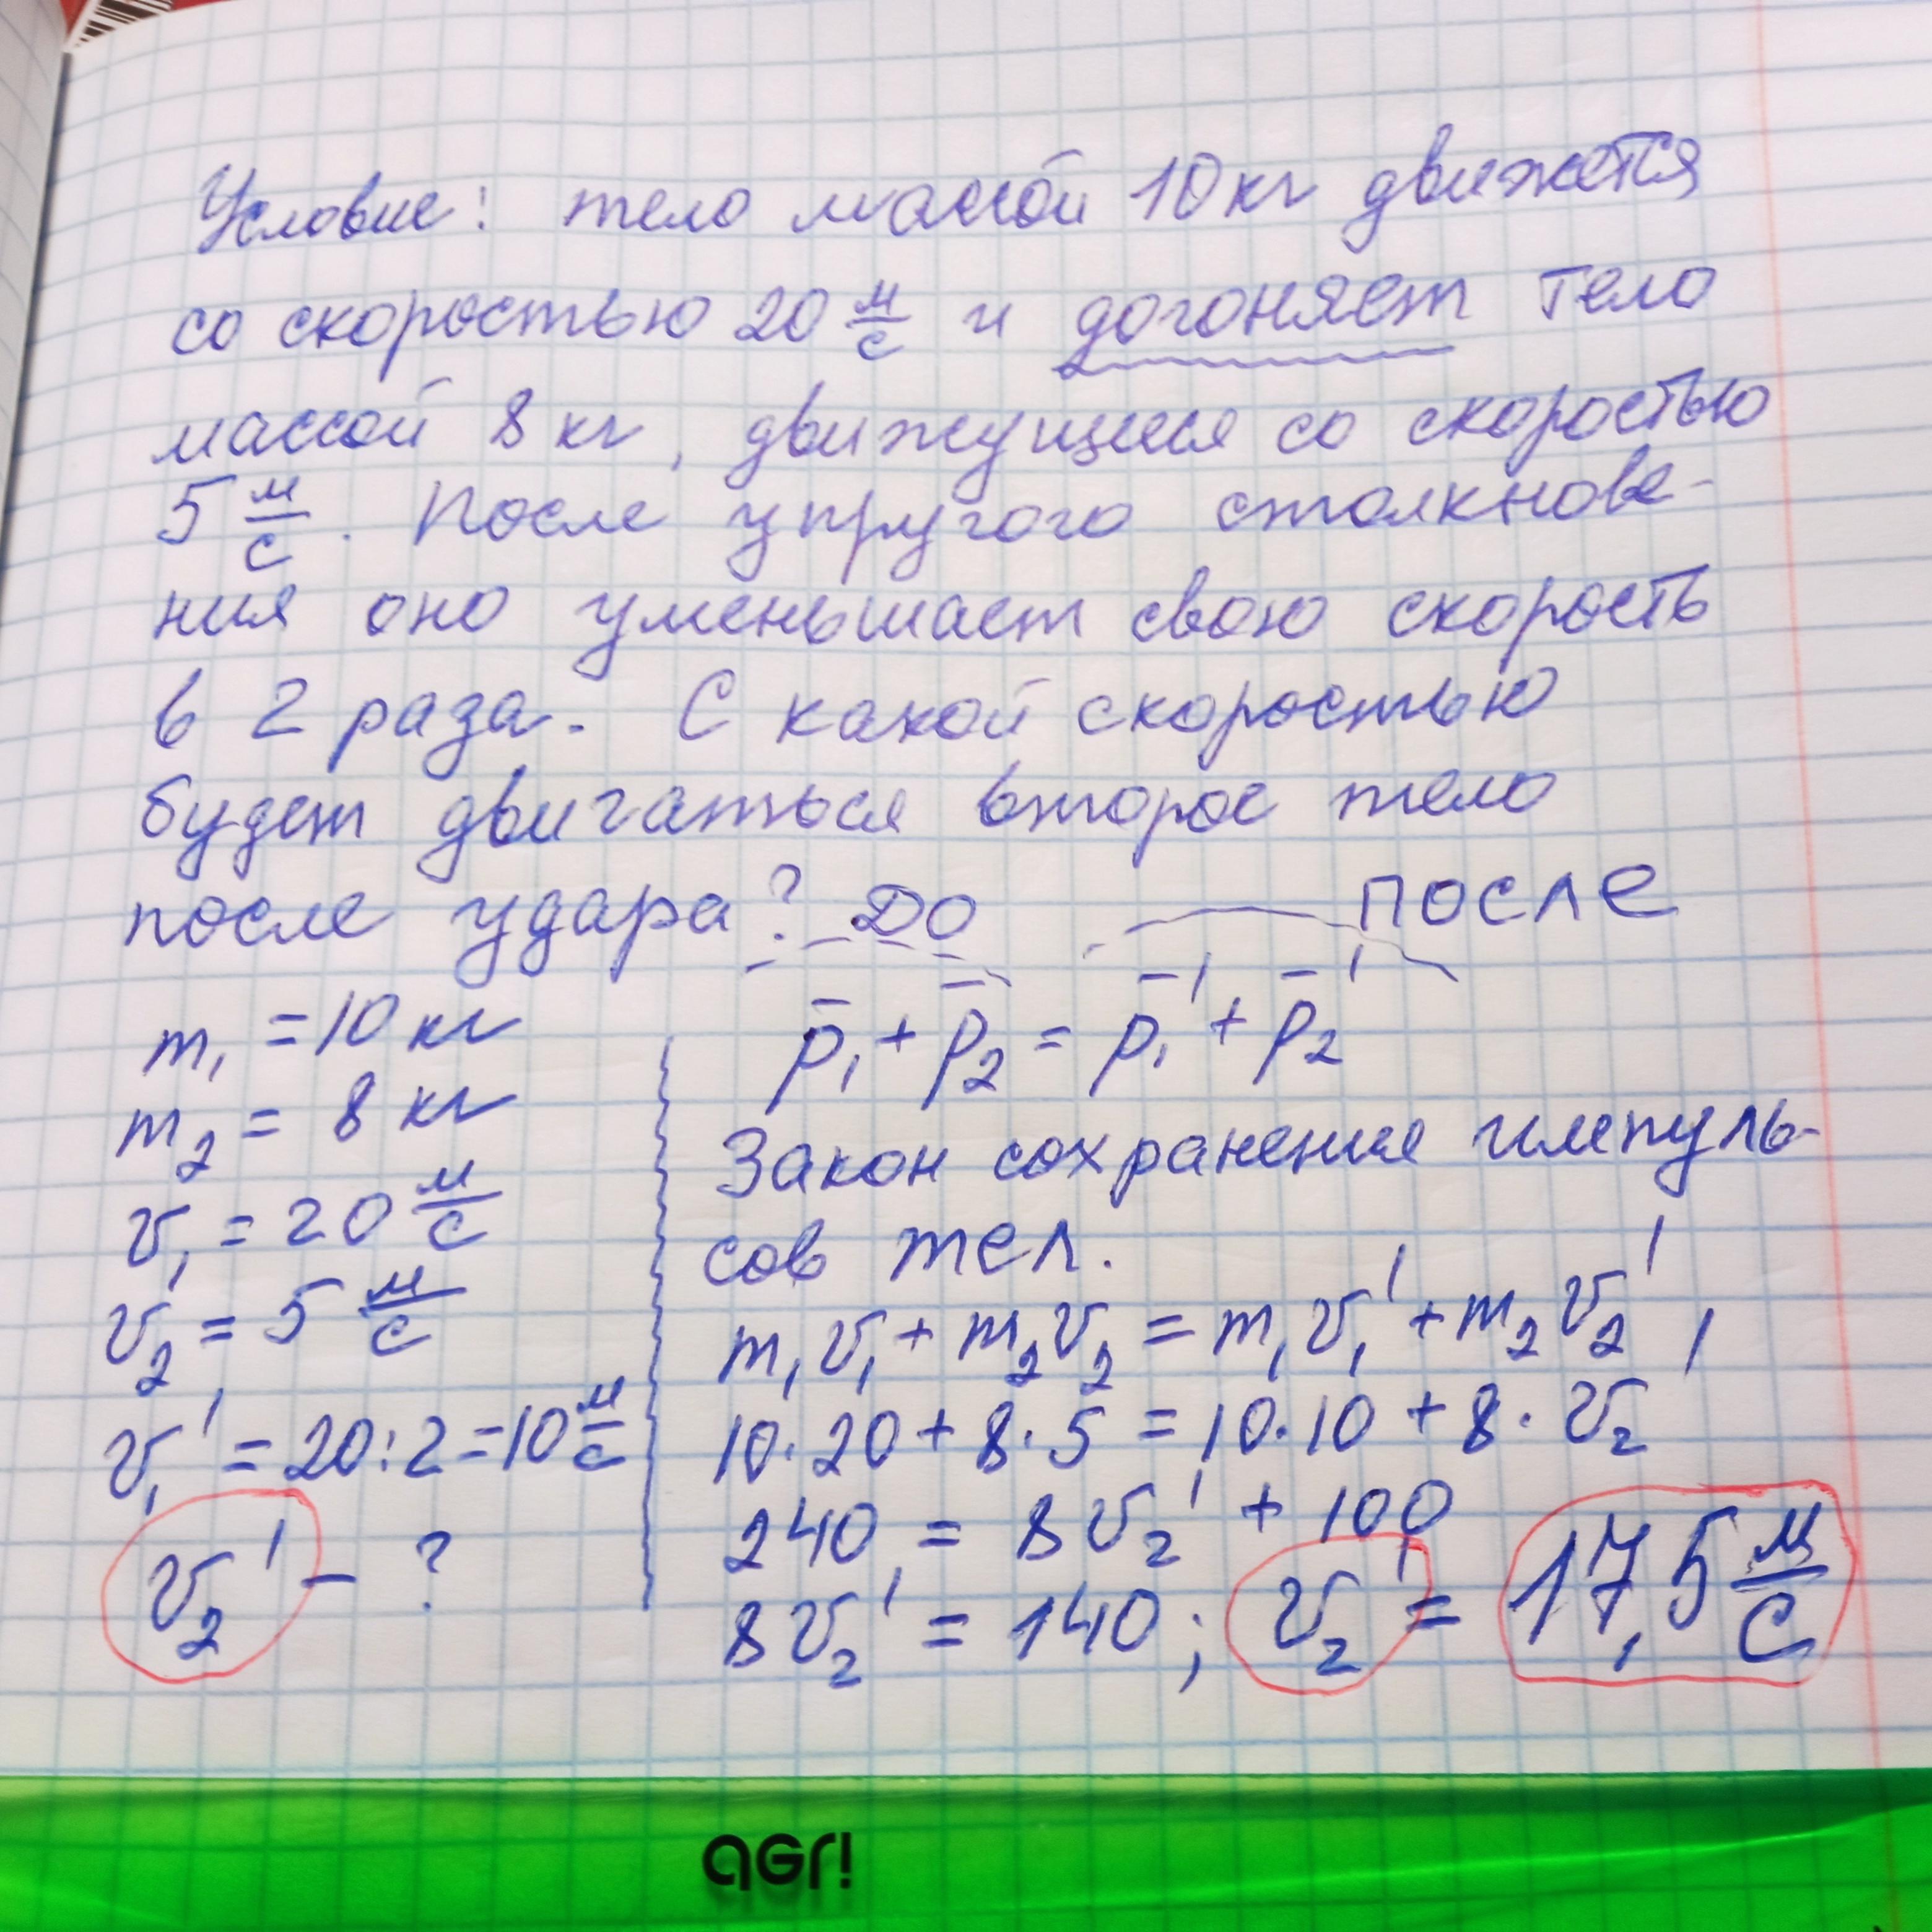 Условие: тело массой 10 кг движется
со скоростью 20 м/с и догоняет тело
массой 8 кг, движущееся со скоростью
5 м/с. После упругого столкнове-
ния оно уменьшает свою скорость
в 2 раза. С какой скоростью
будет двигаться второе тело
после удара? ДО ПОСЛЕ
m₁ = 10 кг
m₂ = 8 кг
v₁ = 20 м/с
v₂ = 5 м/с
v₁' = 20:2=10 м/с
v₂' – ?
p̄₁ + p̄₂ = p̄₁' + p̄₂'
Закон сохранения импуль-
сов тел.
m₁v₁ + m₂v₂ = m₁v₁' + m₂v₂'
10·20 + 8·5 = 10·10 + 8·v₂'
240 = 8v₂' + 100
8v₂' = 140; v₂' = 17,5 м/с
aGr!